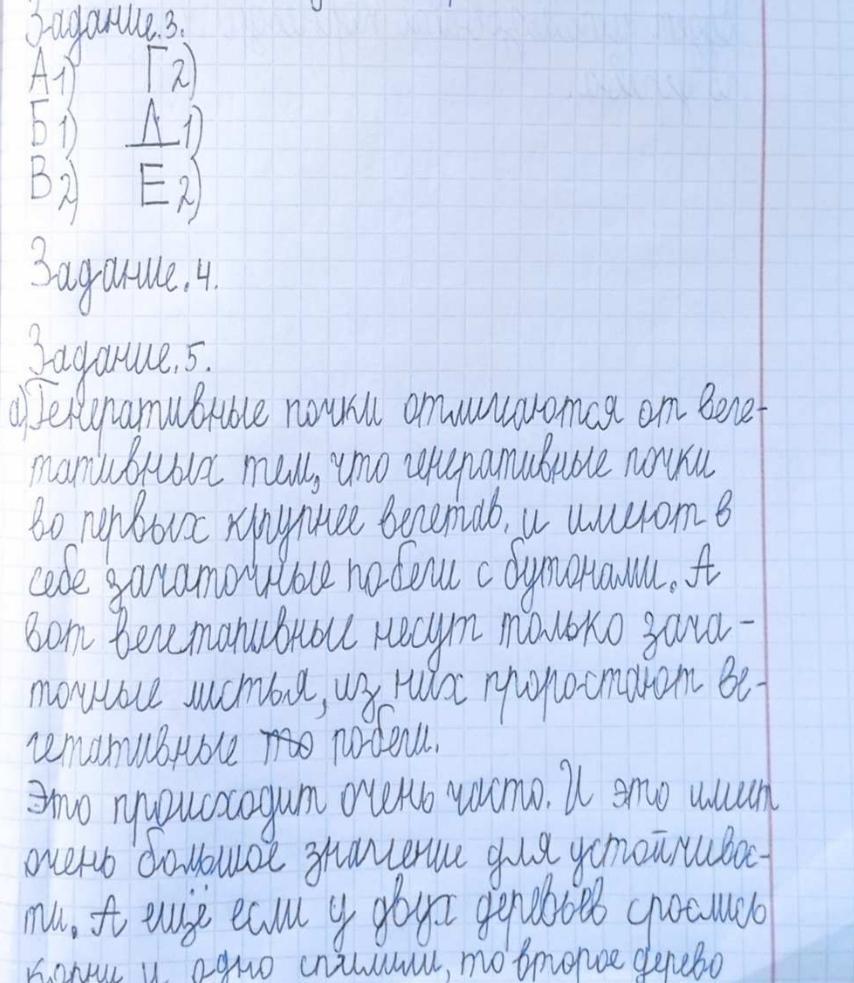 Задание.3.
А1) Г2)
Б1) Д1)
В2) Е2)
Задание.4.
Задание.5.
а) Генеративные почки отличаются от веге-
тативных тем, что генеративные почки
во первых крупнее вегетав. и имеют в
себе зачаточные побеги с бутонами. А
вот вегетативные несут только зача-
точные листья, из них проростают ве-
гетативные то побеги.
Это происходит очень часто. И это имеет
очень большое значение для устойчивос-
ти. А ещё если у двух деревьев срослись
корни и одно спилили, то второе дерево